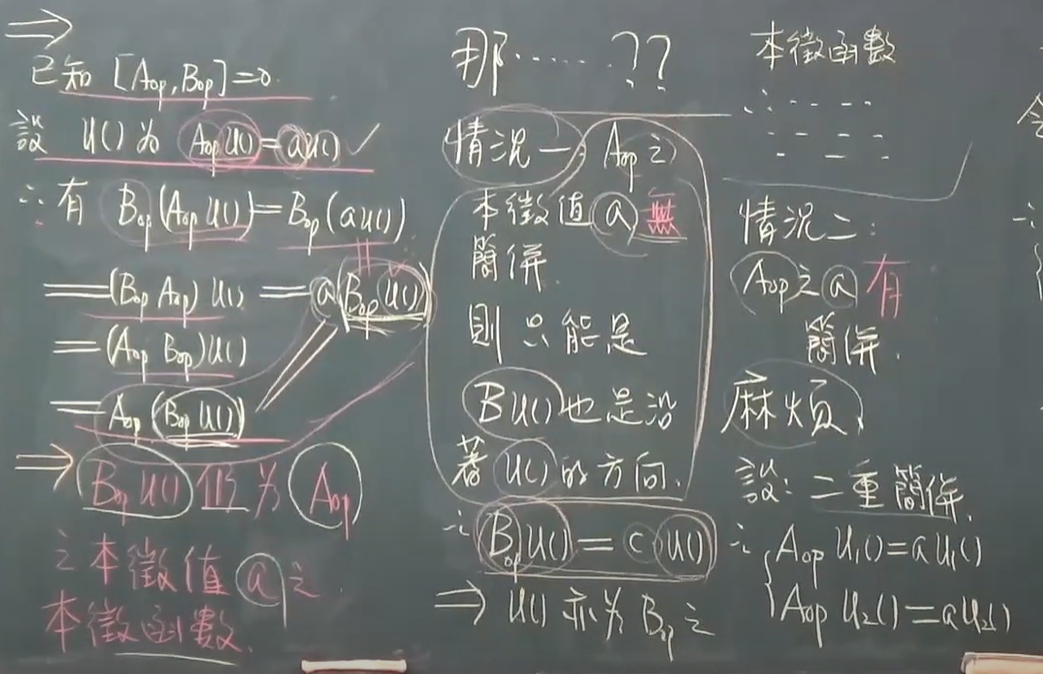 ⇒
已知 [Aop, Bop]=0.
設 U() 為 Aop U()=aU() ✓
∴有 Bop(Aop U())=Bop(aU())
=(Bop Aop) U() = a(Bop U())
=(Aop Bop)U()
=Aop(Bop U())
⇒ Bop U() 仍為 Aop
之本徵值 a 之
本徵函數.
那……??
情況一: Aop 之
本徵值 a 無
簡併.
則只能是
BU()也是沿
著U()的方向.
∴ Bop U() = c U()
⇒ U() 亦為 Bop 之
本徵函數
情況二:
Aop之a有
簡併.
麻煩,
設:二重簡併.
∴ Aop U1()=aU1()
Aop U2()=aU2()